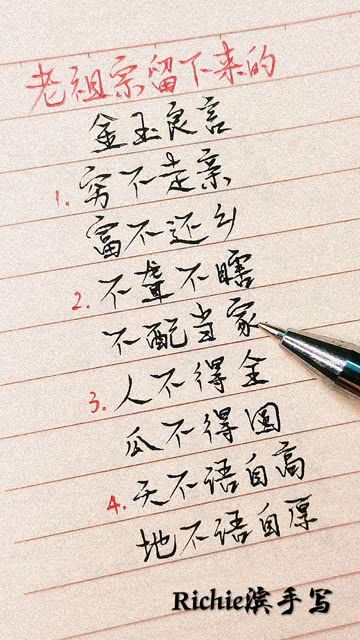 老祖宗留下来的
金玉良言
1. 穷不走亲
富不还乡
2. 不聋不瞎
不配当家
3. 人不得全
瓜不得圆
4. 天不语自高
地不语自厚
Richie滨手写